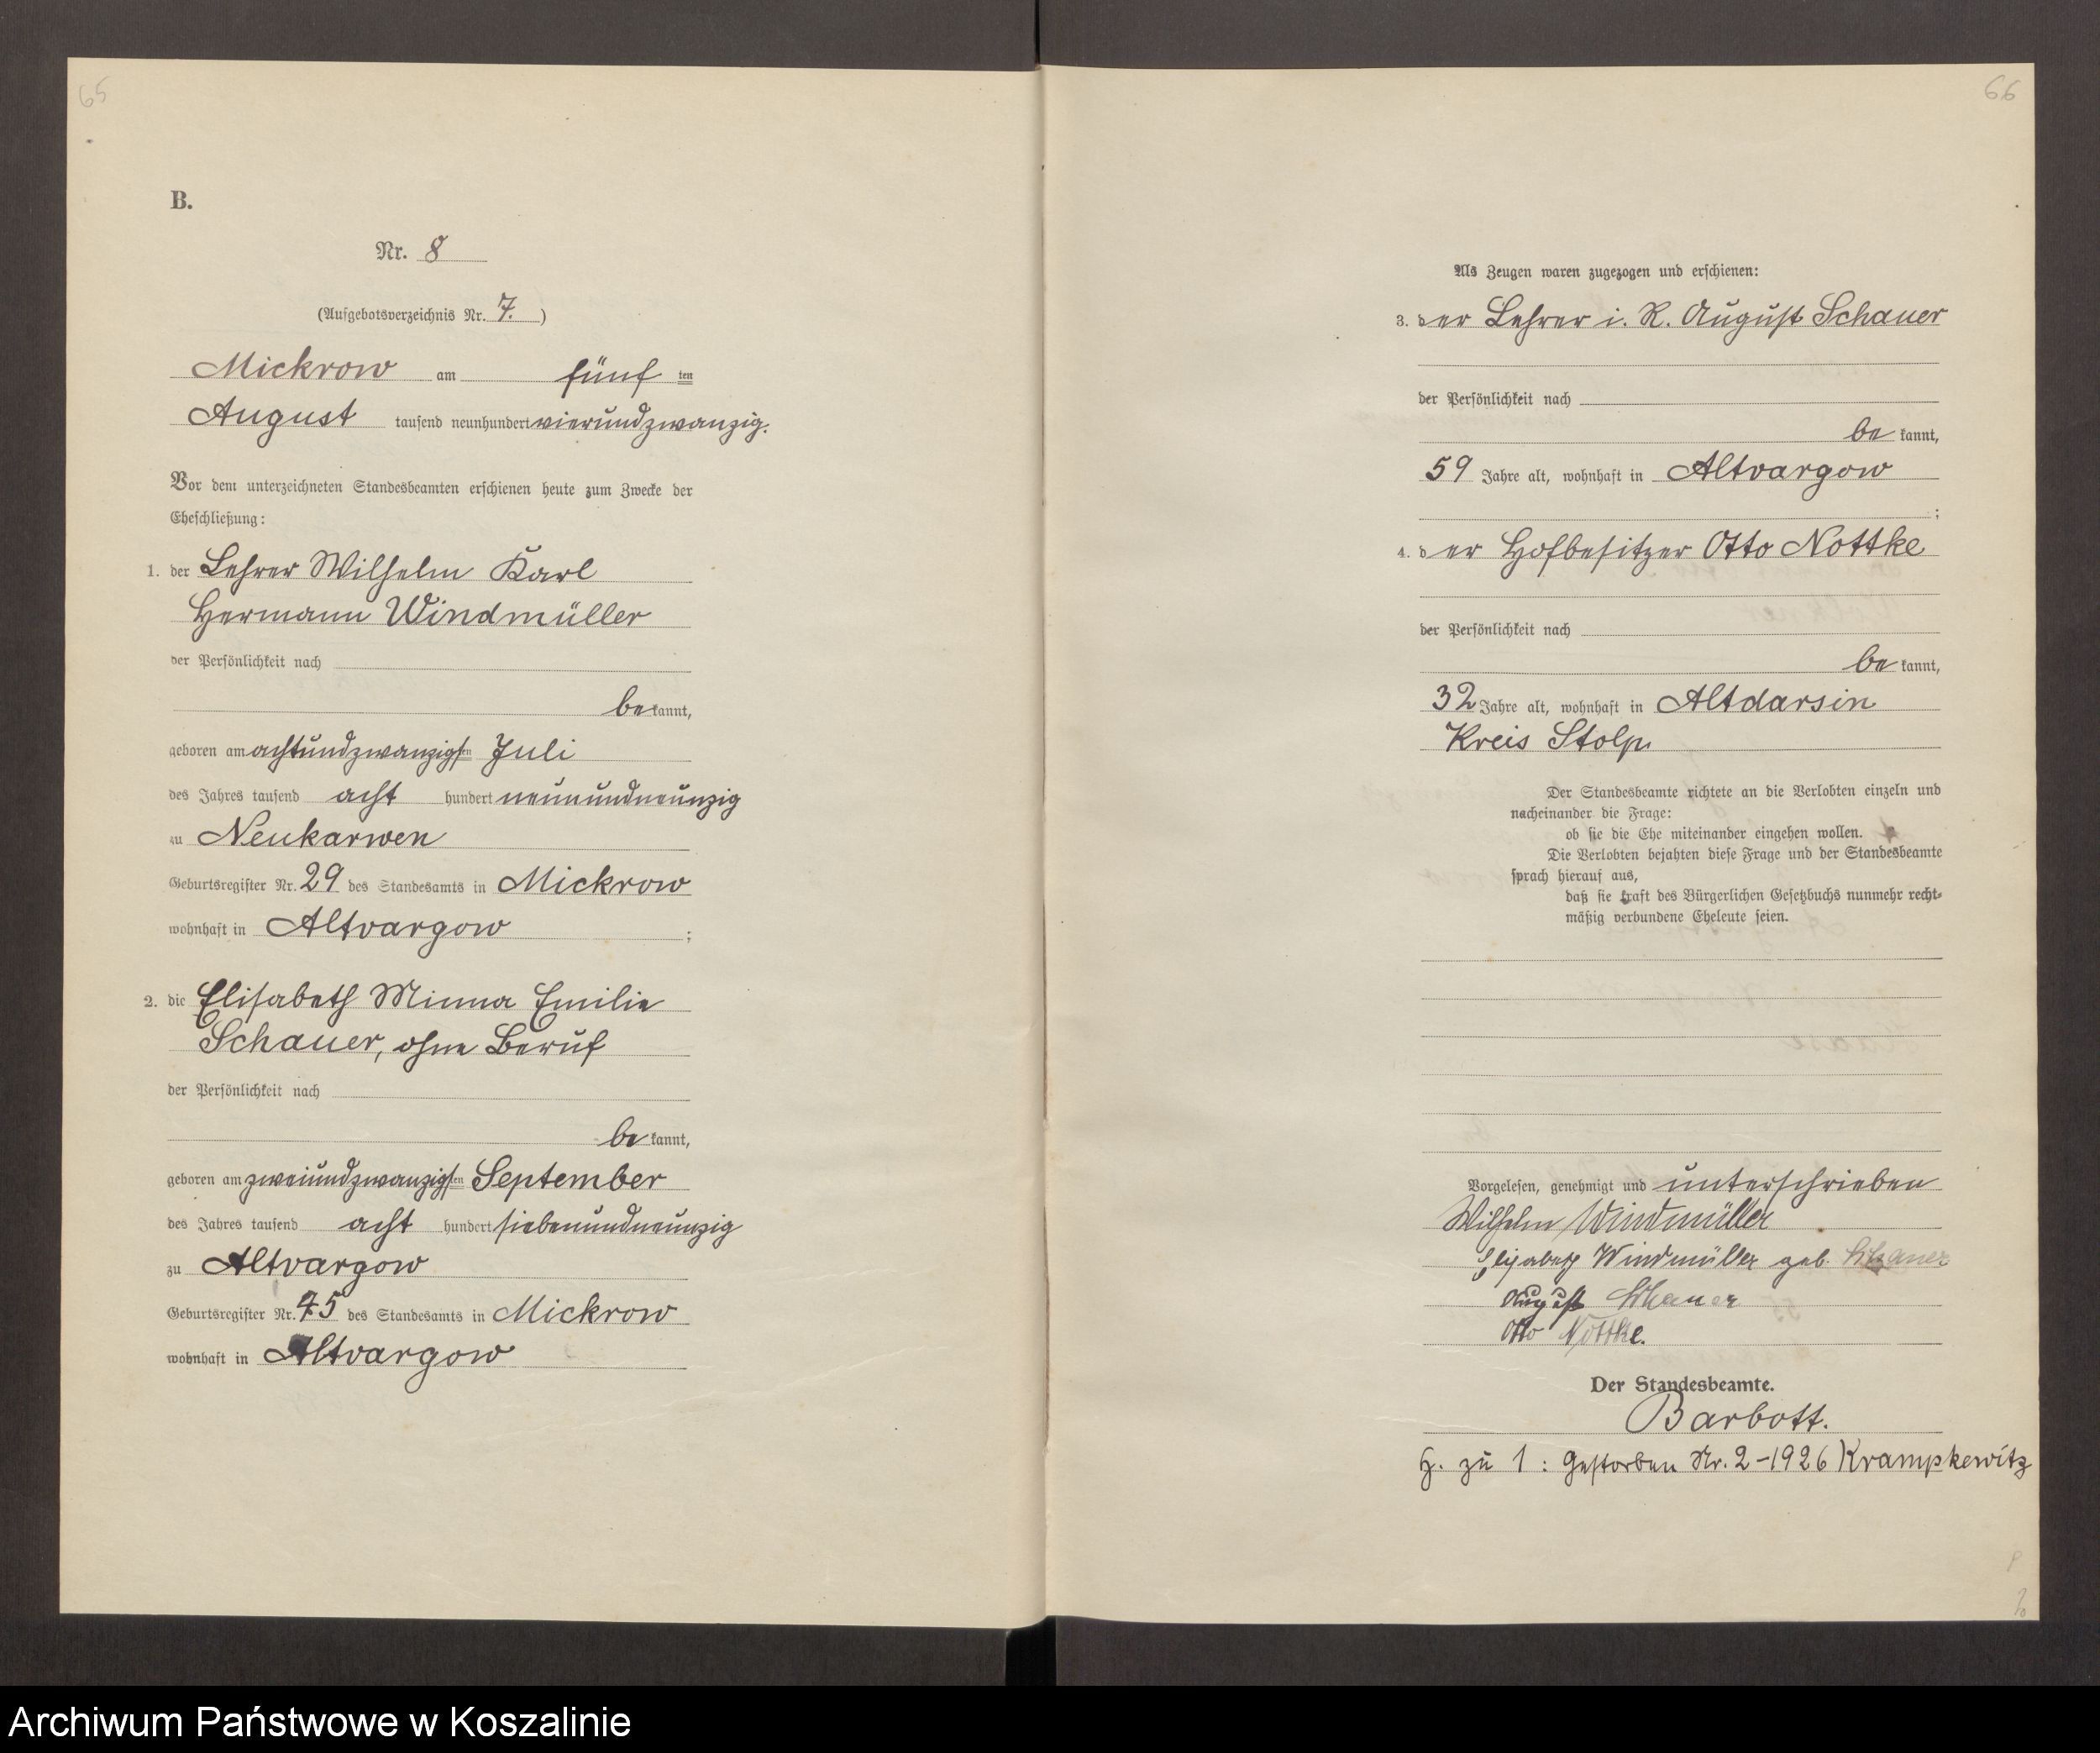 65
B.
Nr. 8
(Aufgebotsverzeichnis Nr. 7.)
Mickrow am fünf ten
August tausend neunhundert vierundzwanzig.
Vor dem unterzeichneten Standesbeamten erschienen heute zum Zwecke der
Eheschließung:
1. der Lehrer Wilhelm Karl
Hermann Windmüller
der Persönlichkeit nach
bekannt,
geboren am achtundzwanzigsten Juli
des Jahres tausend acht hundert neunundneunzig
zu Neukarwen
Geburtsregister Nr. 29 des Standesamts in Mickrow
wohnhaft in Altvargow ;
2. die Elisabeth Minna Emilie
Schauer, ohne Beruf
der Persönlichkeit nach
bekannt,
geboren am zweiundzwanzigsten September
des Jahres tausend acht hundert siebenundneunzig
zu Altvargow
Geburtsregister Nr. 45 des Standesamts in Mickrow
wohnhaft in Altvargow
66
Als Zeugen waren zugezogen und erschienen:
3. der Lehrer i. R. August Schauer
der Persönlichkeit nach
bekannt,
59 Jahre alt, wohnhaft in Altvargow
;
4. der Hofbesitzer Otto Nottke
der Persönlichkeit nach
bekannt,
32 Jahre alt, wohnhaft in Altdarsin
Kreis Stolp.
Der Standesbeamte richtete an die Verlobten einzeln und
nacheinander die Frage:
ob sie die Ehe miteinander eingehen wollen.
Die Verlobten bejahten diese Frage und der Standesbeamte
sprach hierauf aus,
daß sie kraft des Bürgerlichen Gesetzbuchs nunmehr recht-
mäßig verbundene Eheleute seien.
Vorgelesen, genehmigt und unterschrieben
Wilhelm Windmüller
Elisabeth Windmüller geb. Schauer
August Schauer
Otto Nottke.
Der Standesbeamte.
Barbott.
H. zu 1 : Gestorben Nr. 2-1926 Krampkewitz
Archiwum Państwowe w Koszalinie